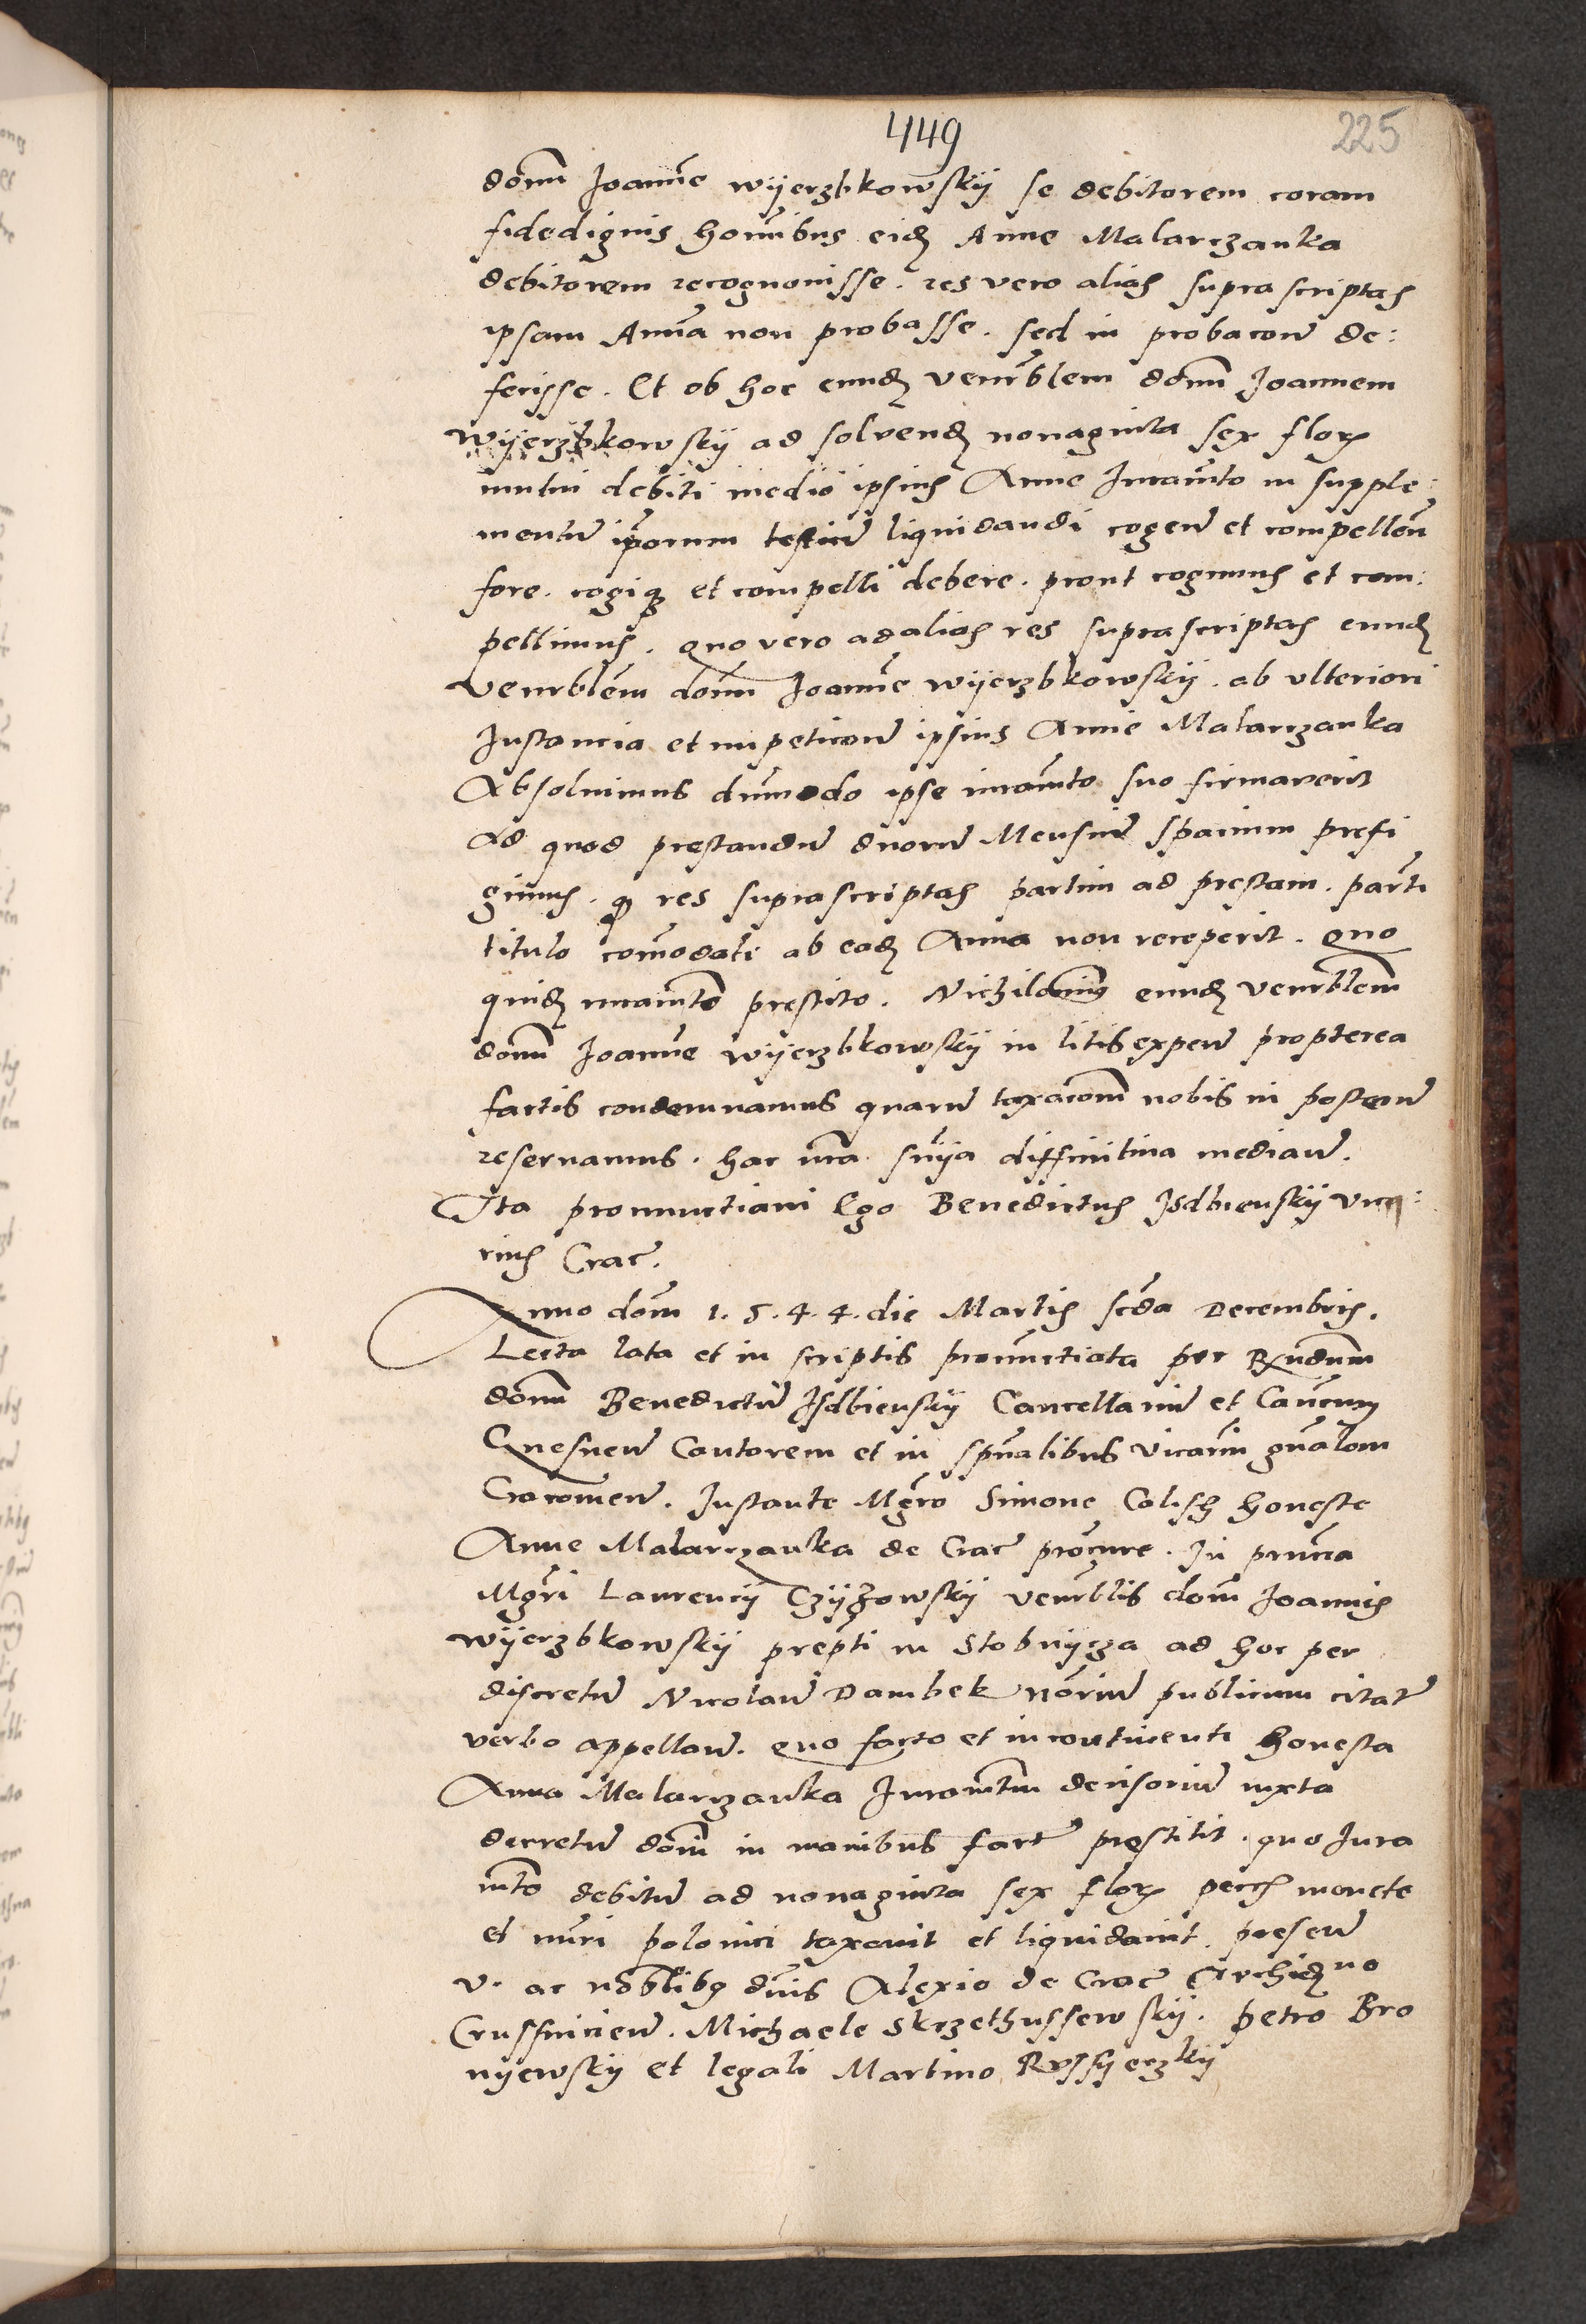 449
225
domū Joannē Wyerzbkowsky se debitorem coram
fidedignis hoībus eidē Anne Malarzanka
debitorem recognovisse. res vero alias suprascriptas
ipsam Annā non probasse. sed in probacoē de:
fecisse. Et ob hoc eundē venrblem domū Joannem
Wyerzbkowsky ad solvendē nonaginta sex flor
mutui debiti medio ipsius Anne Juramto in supple:
mentū ipsorum testiū liquidandi cogen et compellen
fore. cogiq et compelli debere. prout cogimus et com:
pellimus. Quo vero ad alias res suprascriptas eundē
venrblem domū Joannē Wyerzbkowsky. ab ulteriori
Instancia et impeticoē ipsius Anne Malarzanka
Absolvimus dūmodo ipse iuramto suo firmaverit
Ad quod prestandū duorū Mensiū spacium prefi
gimus. qd res suprascriptas partim ad prestam. parti
titulo comodati ab eadē Anna non receperit. Quo
quidē iuramto prestito. Nichilominus eundē venrblem
domū Joannē Wyerzbkowsky in litis expen propterea
factis condemnamus quarū taxacoem nobis in posterū
reservamus. hac nra sniya diffinitiva median.
Ita pronunctiavi Ego Benedictus Isdbiensky Vica:
rius Crac.
Anno dom 1.5.4.4. die Martis scda Decembris.
Lecta lata et in scriptis pronunctiata per Rxndum
domū Benedictū Isdbiensky Cancellariū et Canonicum
Gnesnen Cantorem et in spualibus vicariū gnalem
Cracovien. Instante Mgro Simone Calish honeste
Anne Malarzanka de Crac procure. In pnncia
Mgri Laurencij Czyzowsky venrblis dom Joannis
Wyerzbkowsky prepti in Stobnycza ad hoc per
discretū Nicolaū Dambek noriū publicum citat
verbo appellan. Quo facto et incontinenti honesta
Anna Malarzanka Juramtum decisoriū iuxta
decretū dom in manibus fact prestitit. quo Jura
mto debitū ad nonaginta sex flor pecc monete
et nūri polonici taxavit et liquidavit. presen
v. ac noblibq dnis Alexio de Crac Archidno
Crussvicien. Michaele Skrzethussewsky. petro Bro
nyewsky et legali Martino